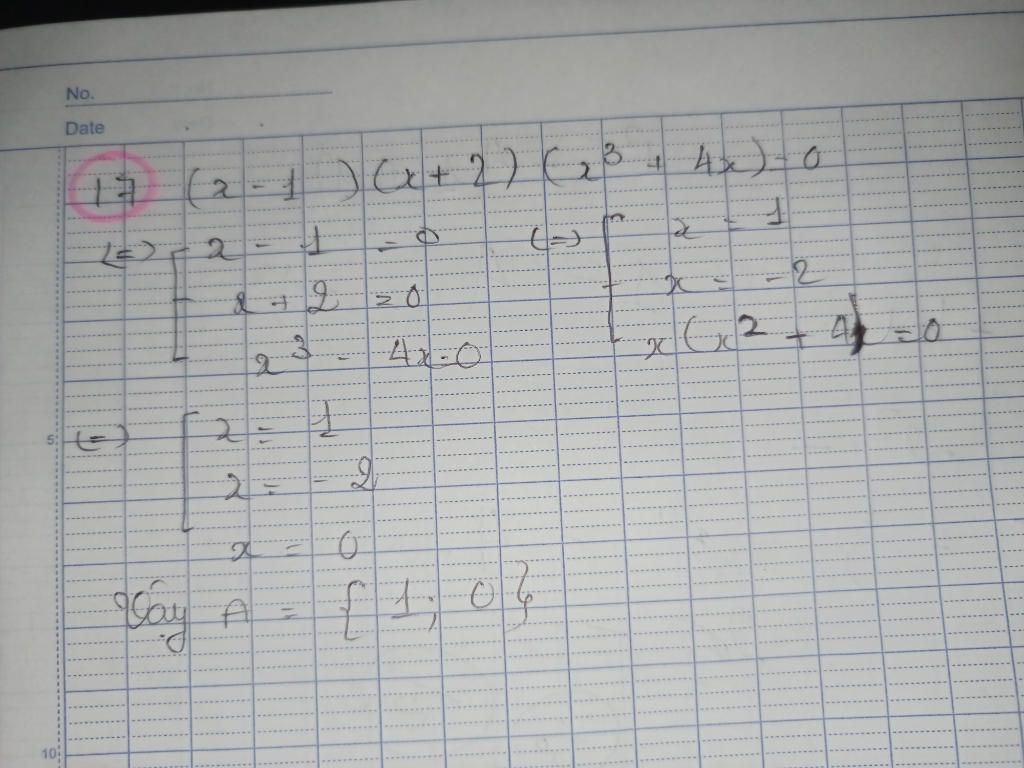 No.
Date
17 (x - 1) (x + 2) (x³ + 4x) = 0
(=) [ x - 1 = 0 (=) [ x = 1
x + 2 = 0 x = -2
x³ - 4x = 0 x(x² + 4) = 0
5 (=) [ x = 1
x = -2
x = 0
Vậy A = {1; 0}
10